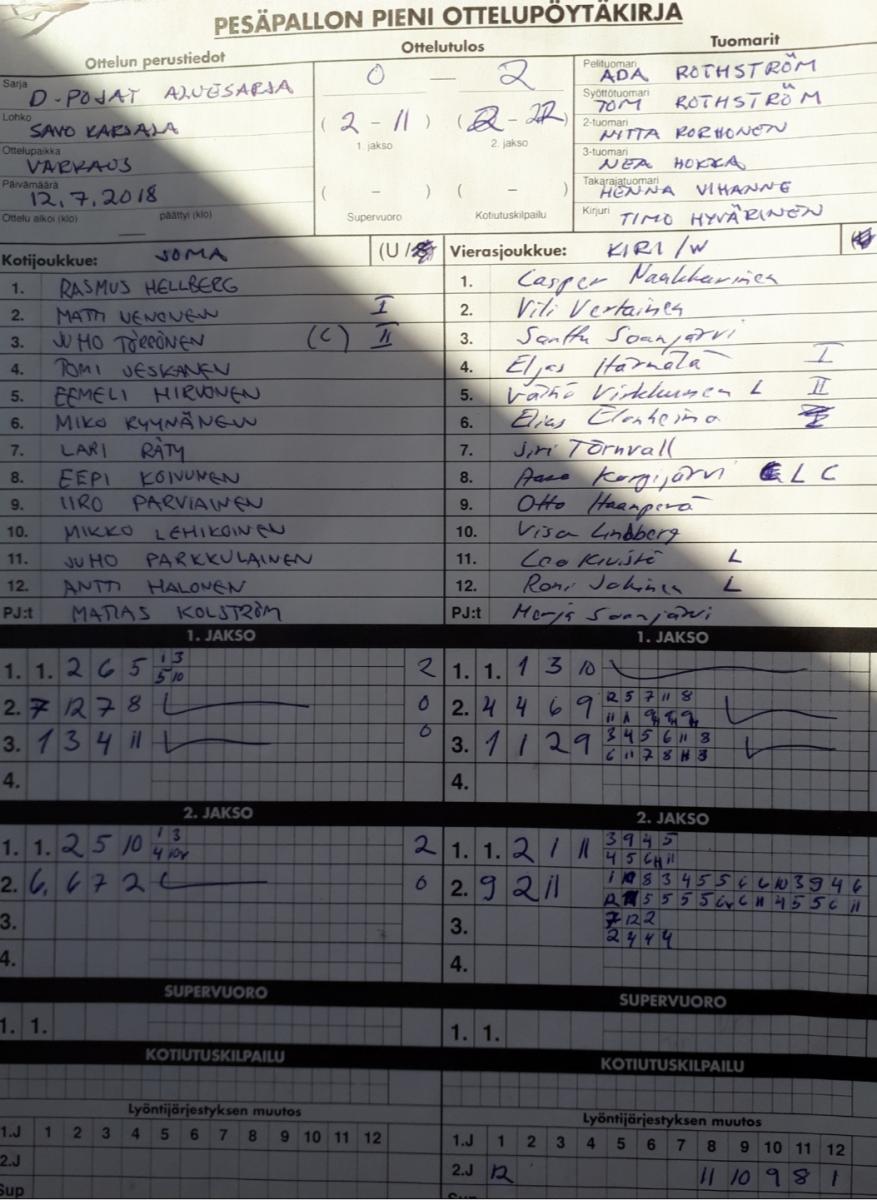 PESÄPALLON PIENI OTTELUPÖYTÄKIRJA
Ottelun perustiedot
Ottelutulos
Tuomarit
Sarja D-POJAT ALUESARJA
Lohko SAVO KARJALA
Ottelupaikka VARKAUS
Päivämäärä 12.7.2018
Ottelu alkoi (klo) päättyi (klo)
0 — 2
( 2 - 11 ) ( 2 - 22 )
1. jakso 2. jakso
( - ) ( - )
Supervuoro Kotiutuskilpailu
Pelituomari ADA ROTHSTRÖM
Syöttötuomari TOM ROTHSTRÖM
2-tuomari KORHONEN
3-tuomari NEA HOKKA
Takarajatuomari HENNA VIHANNE
Kirjuri TIMO HYVÄRINEN
Kotijoukkue: JOMA (U /
1. RASMUS HELLBERG
2. MATTI VENONEN I
3. JUHO TÖRRÖNEN (C) II
4. TOMI JESKANEN
5. EEMELI HIRVONEN
6. MIKO RYYNÄNEN
7. LARI RÄTY
8. EEPI KOIVUNEN
9. IIRO PARVIAINEN
10. MIKKO LEHIKOINEN
11. JUHO PARKKULAINEN
12. ANTTI HALONEN
PJ:t MATIAS KOLSTRÖM
Vierasjoukkue: KIRI /W
1. Casper Naakkarinen
2. Vili Vertainen
3. Santtu Saanjärvi
4. Eljas Härmälä I
5. Väinö Virkkunen L II
6. Elias
7. Jiri Törnvall
8. Korpijärvi L C
9. Otto Haanperä
10. Visa Lindberg
11. Leo Kivistö L
12. Roni Jokinen L
PJ:t Merja Saanjärvi
1. JAKSO
1. 1. 2 6 5 1 3 2
5 10
2. 7 12 7 8 0
3. 1 3 4 11 0
4.
1. JAKSO
1. 1. 1 3 10
2. 4 4 6 9 12 5 7 11 8
3. 1 1 2 9 3 4 5 6 11 8
6 11 7 8
4.
2. JAKSO
1. 1. 2 5 10 1 3 2
2. 6. 6 7 2 0
3.
4.
2. JAKSO
1. 1. 2 1 11 3 9 4 5
4 5 6 11
2. 9 2 11 8 3 4 5 5 6 6 10 3 9 4 6
5 5 5 5 6 6 11 4 5 5 6 11
3. 7 12 2
2 4 4 4
4.
SUPERVUORO
1. 1.
SUPERVUORO
1. 1.
KOTIUTUSKILPAILU
KOTIUTUSKILPAILU
Lyöntijärjestyksen muutos
1.J 1 2 3 4 5 6 7 8 9 10 11 12
2.J
Sup
Lyöntijärjestyksen muutos
1.J 1 2 3 4 5 6 7 8 9 10 11 12
2.J 12 11 10 9 8 1